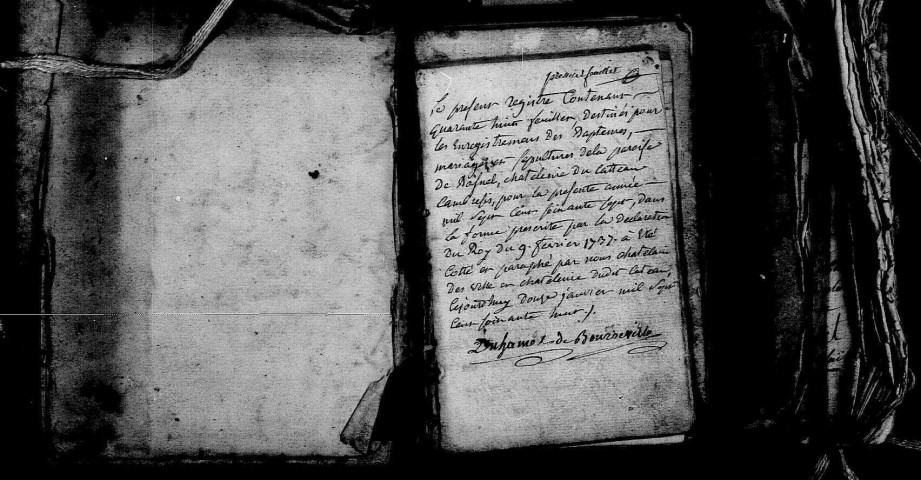 premier feuillet
Le present registre Contenant
Quarante huit feuillets, destinés pour
les Enregistremens des Baptemes,
mariages et sepultures dela paroisse
De, chatelenie du Catteau
Cambresis, pour la presente année
mil Sept Cent soixante sept, dans
la forme prescrite par la declaration
Du Roy du 9. fevrier 1737. à Eté
Cotté et paraphé par nous chatelain
Des ville et chatelenie dudit Cateau,
Cejourdhuy Douze janvier mil Sept
Cent soixante huit ./.
Duhamel de Bourseville